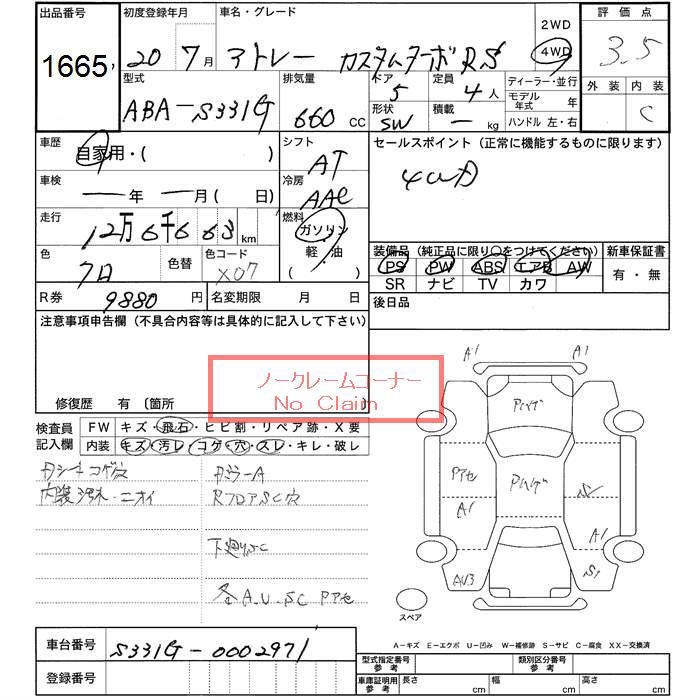 出品番号 初度登録年月 車名・グレード 2WD 評価点
1665 20 7月 アトレー カスタムターボRS 4WD 3.5
型式 排気量 ドア 定員 ディーラー・並行 外装 内装
ABA-S331G 660 CC 5 4人 モデル年式 年 C
形状 SW 積載 ー kg ハンドル 左・右
車歴 自家用・( ) シフト AT セールスポイント (正常に機能するものに限ります)
車検 ー年 ー月( 日) 冷房 AAC 4WD
走行 12万6千663 km 燃料 ガソリン 軽・油 ( )
装備品 (純正品に限り○をつけてください) 新車保証書
色 色替 色コード X07 PS PW ABS エアB AW 有・無
SR ナビ TV カワ
R券 9880円 名変期限 月 日 後日品
注意事項申告欄 (不具合内容等は具体的に記入して下さい)
ノークレームコーナー
No Claim
修復歴 有 〔箇所
検査員記入欄 FW キズ・飛石・ヒビ割・リペア跡・X要
内装 キズ・汚レ・コゲ・穴・スレ・キレ・破レ
内装汚れ・ニオイ RフロアSC穴
下廻りSC
各A.U.SC Pアセ
A1 A1
Pハゲ
Pアセ Pハゲ
A1 A1
AU3 S1
スペア
A-キズ E-エクボ U-凹み W-補修跡 S-サビ C-腐食 XX-交換済
車台番号 S331G-0002971
型式指定番号 参考 類別区分番号 参考
登録番号 車庫証明用 参考 長さ cm 幅 cm 高さ cm